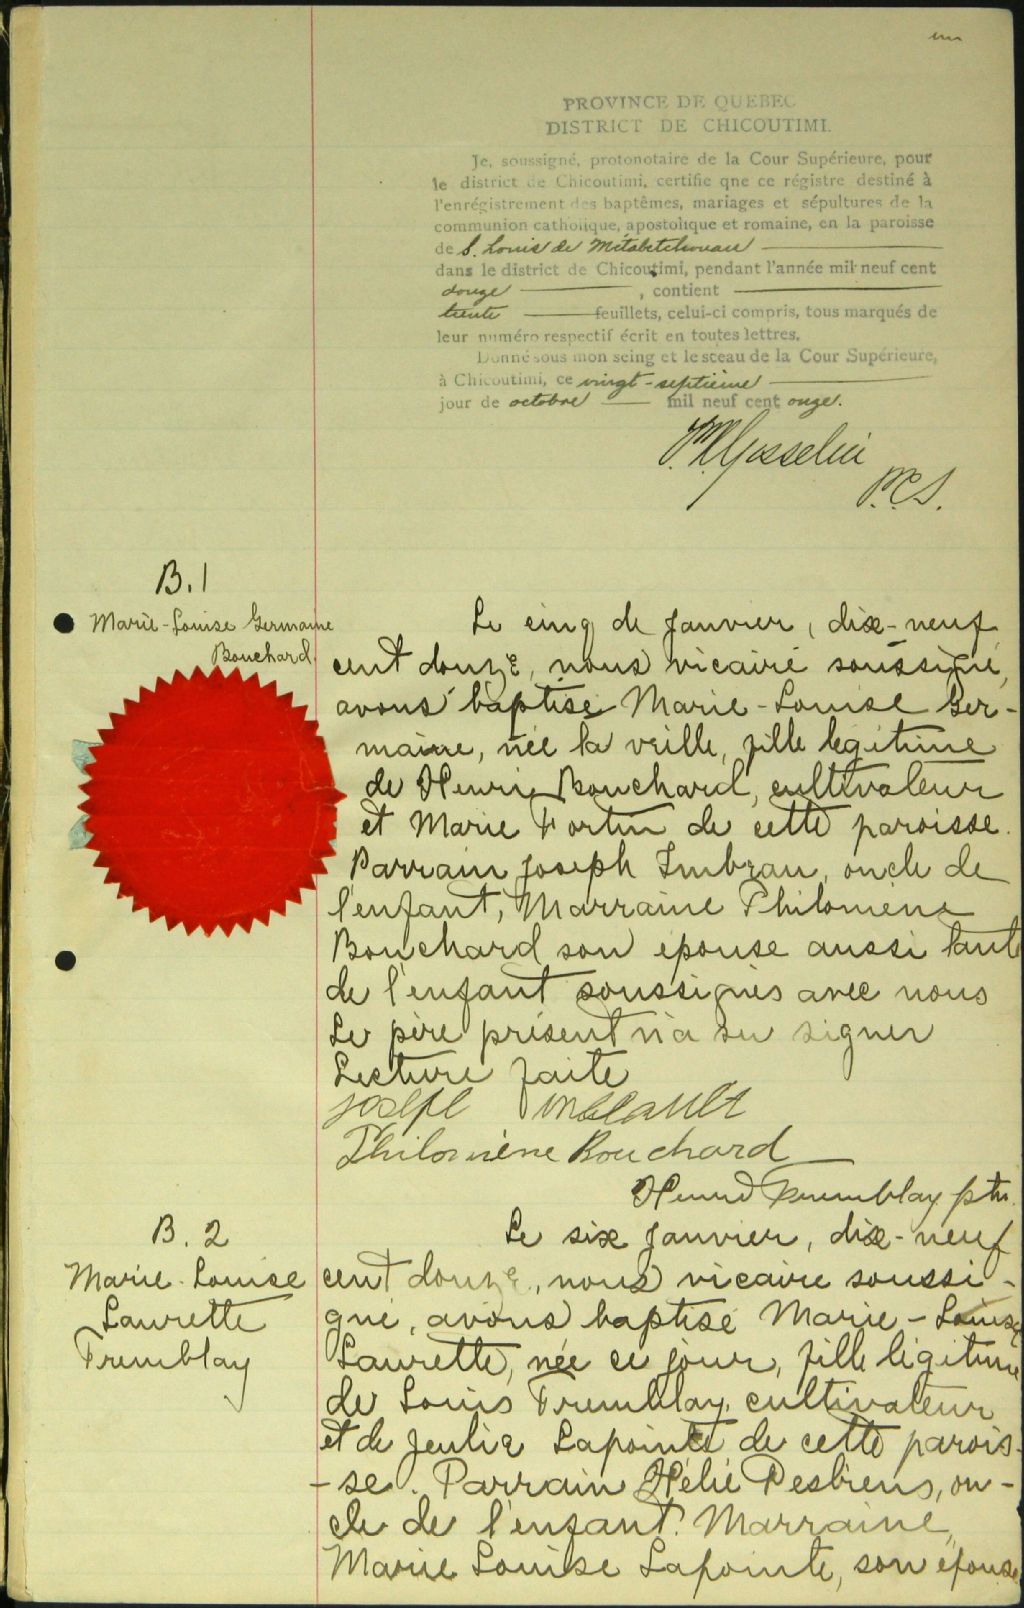 un
PROVINCE DE QUEBEC
DISTRICT DE CHICOUTIMI.
Je, soussigné, protonotaire de la Cour Supérieure, pour
le district de Chicoutimi, certifie qne ce régistre destiné à
l'enrégistrement des baptêmes, mariages et sépultures de la
communion catholique, apostolique et romaine, en la paroisse
de S. Louis de Métabetchouan
dans le district de Chicoutimi, pendant l'année mil neuf cent
douze, contient
trente feuillets, celui-ci compris, tous marqués de
leur numéro respectif écrit en toutes lettres.
Donné sous mon seing et le sceau de la Cour Supérieure,
à Chicoutimi, ce vingt-septième
jour de octobre mil neuf cent onze.
Gosselin
P.C.S.
B. 1
Marie-Louise Germaine
Bouchard.
Le cinq de Janvier, dix-neuf
cent douze, nous vicaire soussigné,
avons baptisé Marie-Louise Ger-
maine, née la veille, fille légitime
de Henri Bouchard, cultivateur
et Marie Fortin de cette paroisse.
Parrain Joseph Imbeau, oncle de
l'enfant, Marraine Philomène
Bouchard son épouse aussi tante
de l'enfant soussignés avec nous
Le père présent n'a su signer
Lecture faite
Joseph Imbeault
Philomène Bouchard
Henri Tremblay ptr.
B. 2
Marie-Louise
Laurette
Tremblay
Le six Janvier, dix-neuf
cent douze, nous vicaire soussi-
gné, avons baptisé Marie-Louise
Laurette, née ce jour, fille légitime
de Louis Tremblay, cultivateur
et de Julie Lapointe de cette parois-
-se. Parrain Hélie Desbiens, on-
cle de l'enfant. Marraine,
Marie Louise Lapointe, son épouse